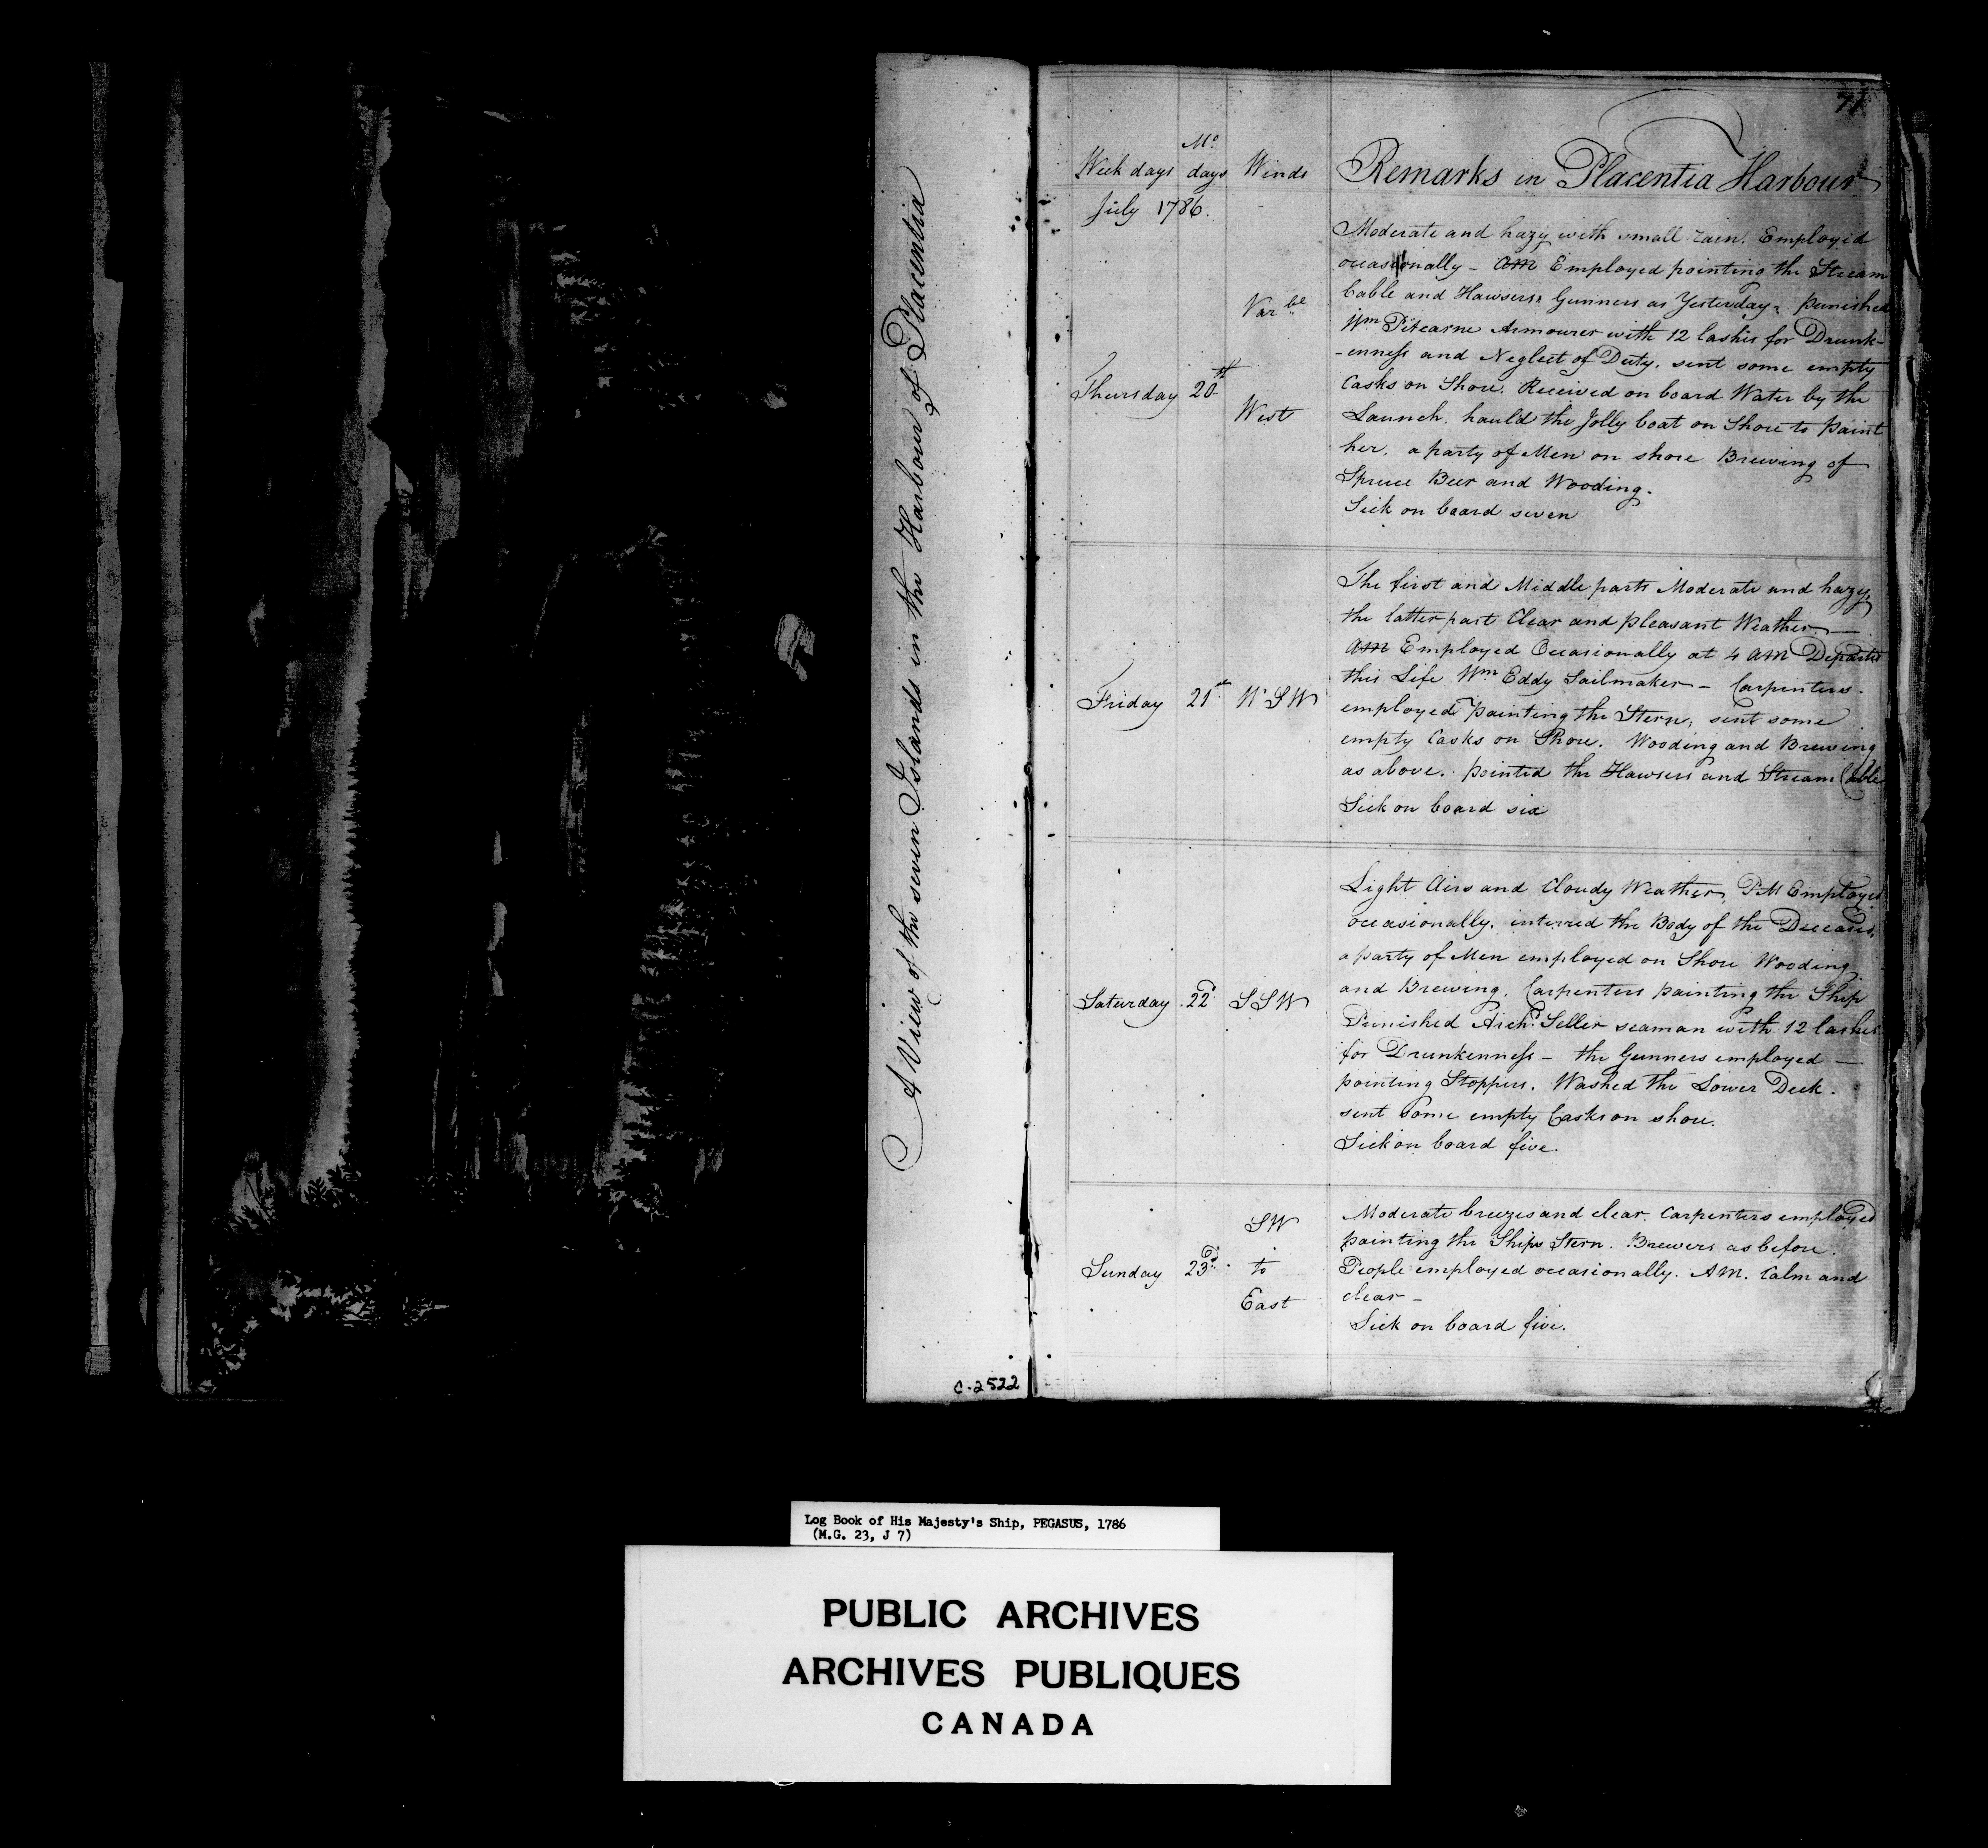 A View of the seven Islands in the Harbour of Placentia
C-2522
71
Week days Mo. days Winds Remarks in Placentia Harbour
July 1786.
Thursday 20th Varble West
Moderate and hazy with small rain. Employed
occasionally - AM Employed pointing the Stream
Cable and Hawsers, Gunners as Yesterday, punished
Wm Armourer with 12 lashes for Drunk-
-enness and Neglect of Duty. sent some empty
Casks on Shore. Received on board Water by the
Launch. haul'd the Jolly boat on Shore to paint
her. a party of Men on shore Brewing of
Spruce Beer and Wooding.
Sick on board seven
Friday 21st W S W
The first and Middle parts Moderate and hazy,
the latter part Clear and pleasant Weather -
AM Employed Occasionally at 4 AM Departed
this Life Wm Eddy Sailmaker - Carpenters
employed painting the Stern, sent some
empty Casks on Shore. Wooding and Brewing
as above. pointed the Hawsers and Stream Cable
Sick on board six
Saturday 22d S S W
Light Airs and Cloudy Weather, PM Employed
occasionally. interred the Body of the Deceased,
a party of Men employed on Shore Wooding
and Brewing. Carpenters painting the Ship
Punished Archd Seller seaman with 12 lashes
for Drunkenness - the Gunners employed -
pointing Stoppers. Washed the Lower Deck.
sent some empty Casks on shore.
Sick on board five.
Sunday 23d SW to East
Moderate breezes and clear. Carpenters employed
painting the Ships Stern. Brewers as before.
People employed occasionally. AM. Calm and
clear -
Sick on board five.
Log Book of His Majesty's Ship, PEGASUS, 1786
(M.G. 23, J 7)
PUBLIC ARCHIVES
ARCHIVES PUBLIQUES
CANADA